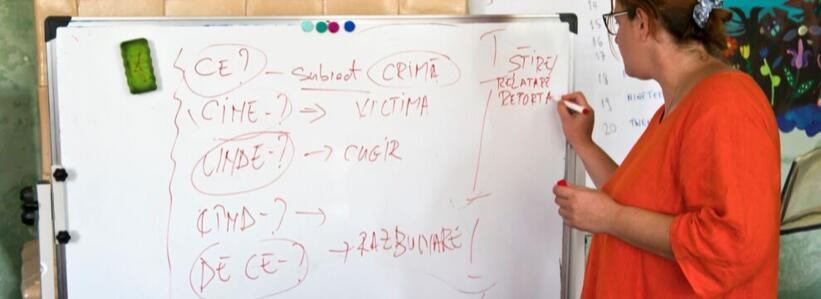 CE? – Subiect CRIMĂ
CINE-? → VICTIMA
UNDE-? → CUGIR
CÎND-? →
DE CE-? → RAZBUNARE
ȘTIRE/
RELATARE
REPORTA
14
15
16
17
18
19 NINETEE
20 TWEN